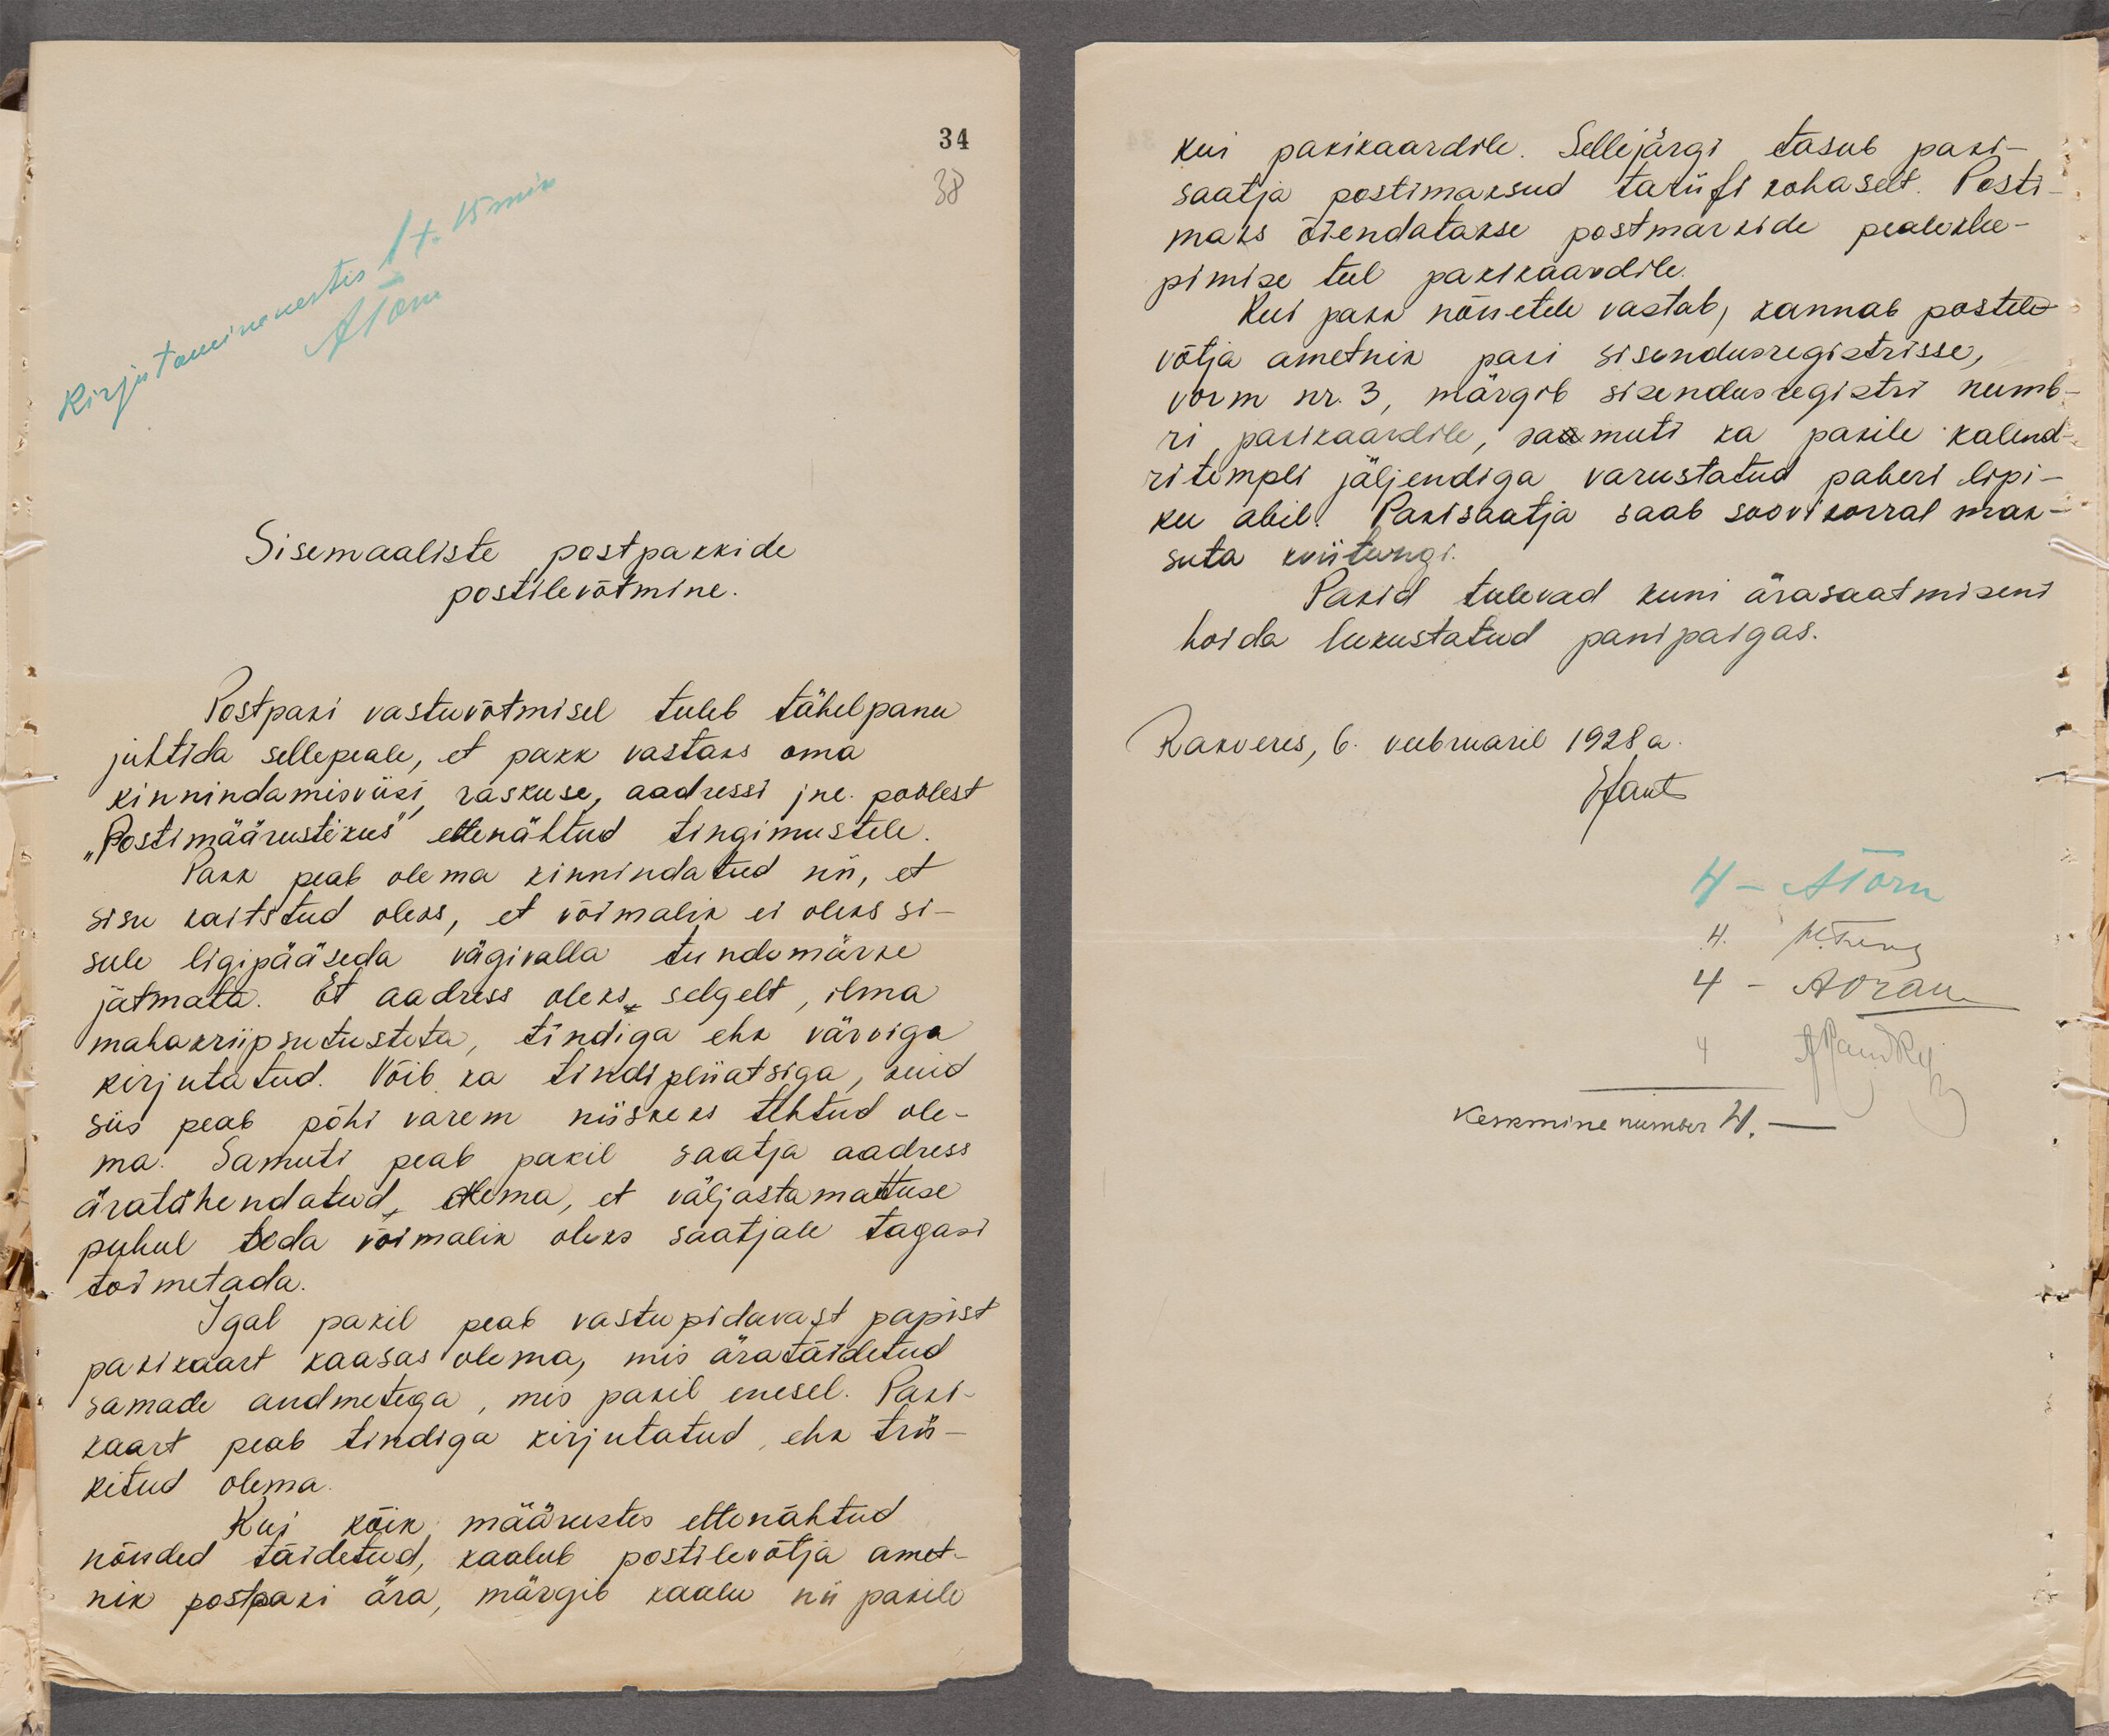 34
38
Kirjutamine kestis 1 t. 15 min
ATorn
Sisemaaliste postpakkide
postilevõtmine.
Postpaki vastuvõtmisel tuleb tähelpanu
juhtida sellepeale, et pakk vastaks oma
kinnindamisviisi, raskuse, aadressi jne. poolest
„Postimäärustikus" ettenähtud tingimustele.
Pakk peab olema kinnindatud nii, et
sisu kaitstud oleks, et võimalik ei oleks si-
sule ligipääseda vägivalla tundemärke
jätmata. Et aadress oleks selgelt, ilma
mahakriipsutusteta, tindiga ehk värviga
kirjutatud. Võib ka tindipliiatsiga, kuid
siis peab põhi varem niiskeks tehtud ole-
ma. Samuti peab pakil saatja aadress
äratähendatud olema, et väljastamattuse
puhul teda võimalik oleks saatjale tagasi
toimetada.
Igal pakil peab vastupidavast papist
pakikaart kaasas olema, mis äratäidetud
samade andmetega, mis pakil enesel. Paki-
kaart peab tindiga kirjutatud, ehk trü-
kitud olema.
Kui kõik määrustes ettenähtud
nõuded täidetud, kaalub postilevõtja amet-
nik postpaki ära, märgib kaalu nii pakile
kui pakikaardile. Sellejärgi tasub paki-
saatja postimaksud tariifi kohaselt. Posti-
maks õiendatakse postmarkide pealeklee-
pimise teel pakikaardile.
Kui pakk nõuetele vastab, kannab postile
võtja ametnik paki sisendusregistrisse,
vorm nr. 3, märgib sisendusregistri numb-
ri pakikaardile, saamuti ka pakile kalend-
ritempli jäljendiga varustatud paberi lipi-
ku abil. Pakisaatja saab soovikorral mak-
suta kviitungi.
Pakid tulevad kuni ärasaatmiseni
hoida lukustatud panipaigas.
Rakveres, 6. veebruaril 1928 a.
4 - ATorn
4.
4 -
4
Keskmine number 4. —